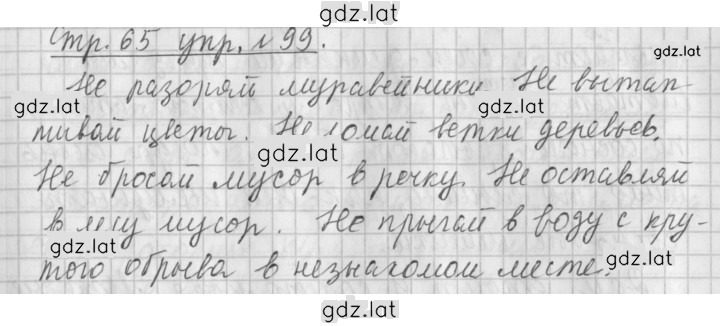 gdz.lat
Стр. 65 упр. №99.
gdz.lat
Не разоряй муравейники. Не вытап
gdz.lat gdz.lat
тывай цветы. Не ломай ветки деревьев.
gdz.lat
Не бросай мусор в речку. Не оставляй
в лесу мусор. Не прыгай в воду с кру-
gdz.lat gdz.lat
того обрыва в незнакомом месте.
gdz.lat